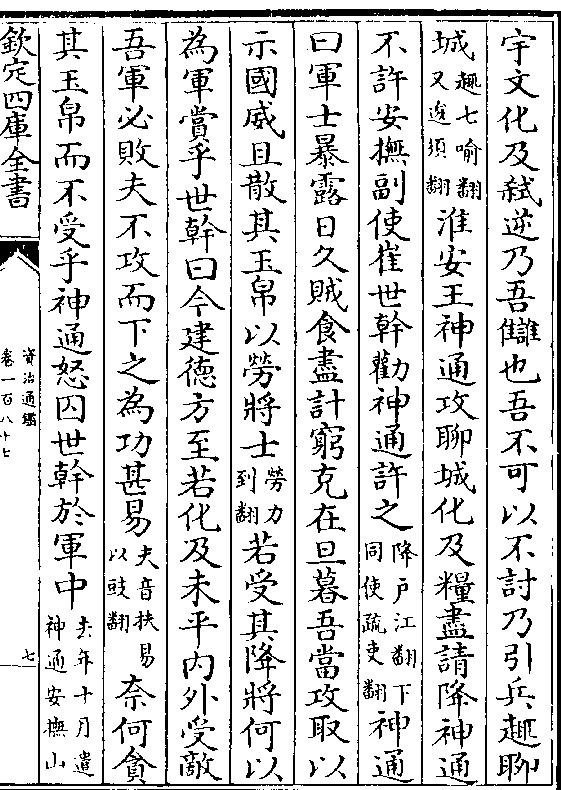 宇文化及弑逆乃吾讎也吾不可以不討乃引兵趣聊
城趣七喻翻又逡須翻淮安王神通攻聊城化及糧盡請降神通
不許安撫副使崔世幹勸神通許之降户江翻下同使疏吏翻神通
曰軍士暴露日久賊食盡計窮克在旦暮吾當攻取以
示國威且散其玉帛以勞將士勞力到翻若受其降將何以
為軍賞乎世幹曰今建德方至若化及未平内外受敵
吾軍必敗夫不攻而下之為功甚易夫音扶易以豉翻奈何貪
其玉帛而不受乎神通怒囚世幹於軍中去年十月遣神通安撫山
欽定四庫全書
資治通鑑
卷一百八十七
七